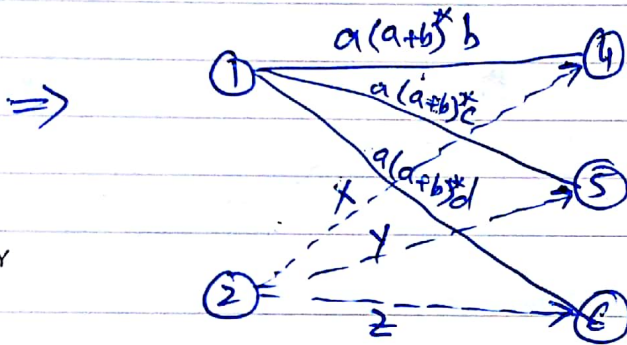 a(a+b)*b
1
4
⇒
a(a+b)*c
a(a+b)*d
X
5
Y
2
Z
6